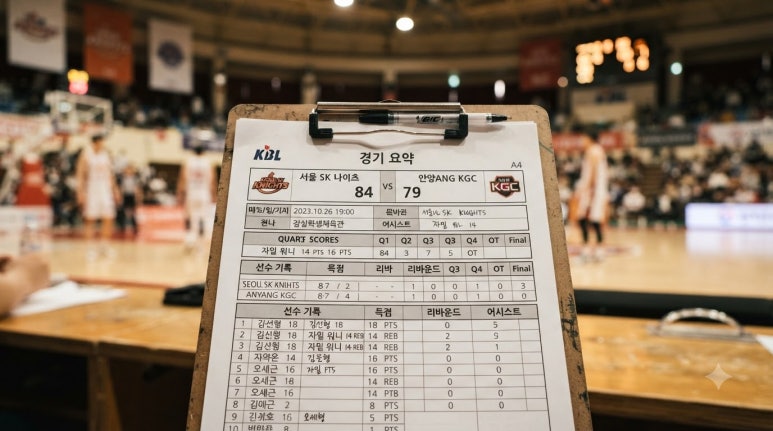 KBL
경기 요약
A4
서울 SK 나이츠 84 VS 79 안양ANG KGC
KNIGHTS
KGC
2023.10.26 19:00 서울 SK KNIGHTS
어시스트 자밀 워니 14
QUART SCORES Q1 Q2 Q3 Q3 Q4 OT Final
자밀 워니 14 PTS 16 PTS 84 3 7 5 OT
선수 기록 득점 리바 리바운드 Q3 Q4 OT Final
SEOUL SK KNIHTS 87 / 2 - - 1 0 0 1 0 3
ANYANG KGC 87 / 4 - - 1 0 0 1 0 0
선수 기록 득점 리바운드 어시스트
1 김선형 18 김선형 18 18 PTS 0 5
2 김선형 18 자밀 워니 14 REB 14 REB 2 9
3 김선형 18 자밀 워니 14 REB 14 REB 2 1
4 14 16 PTS 0 0
5 오세근 16 자밀 PTS 16 PTS 0 0
6 오세근 18 14 REB 0 0
7 오세근 16 14 PTS 0 0
8 2 8 PTS 0 0
9 16 오세형 5 PTS
10 8 1 PTS